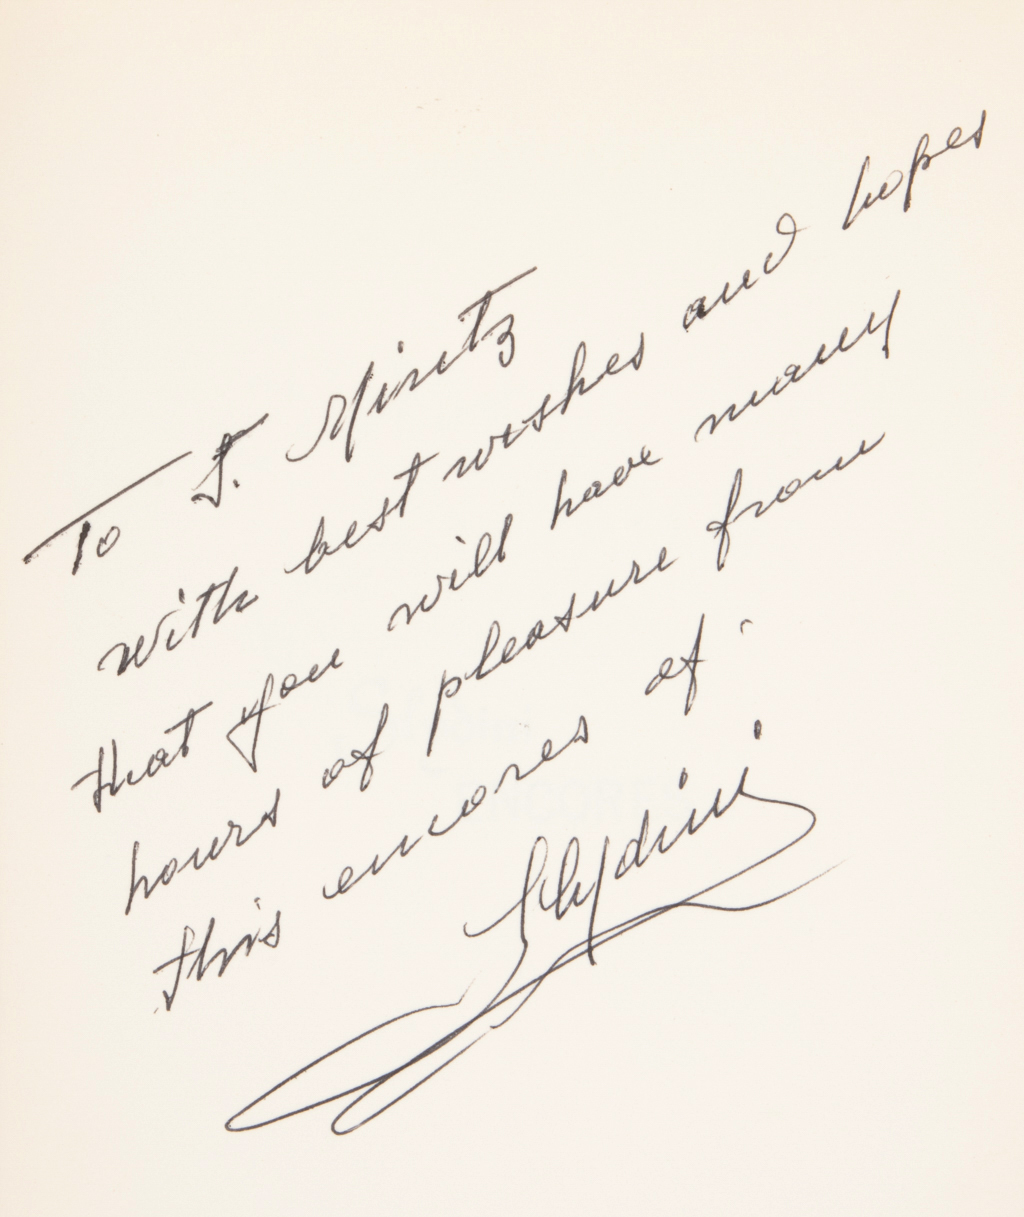 To J. Mintz
with best wishes and hopes
that you will have many
hours of pleasure from
this encores of
Slydini